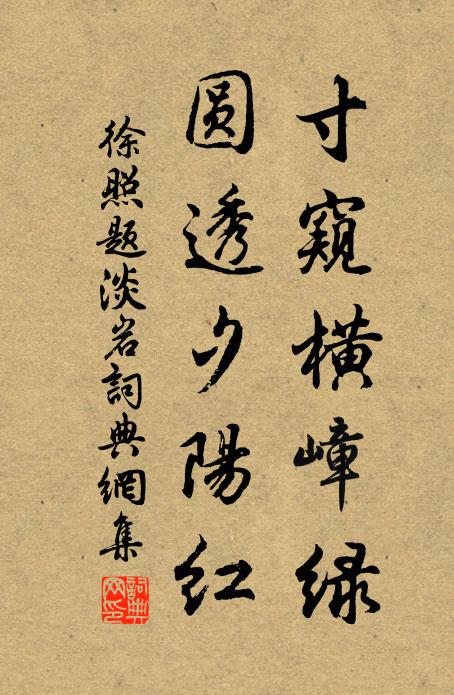 寸窺橫嶂綠
圓透夕陽紅
徐照題淡岩詞典網集
詞典网印